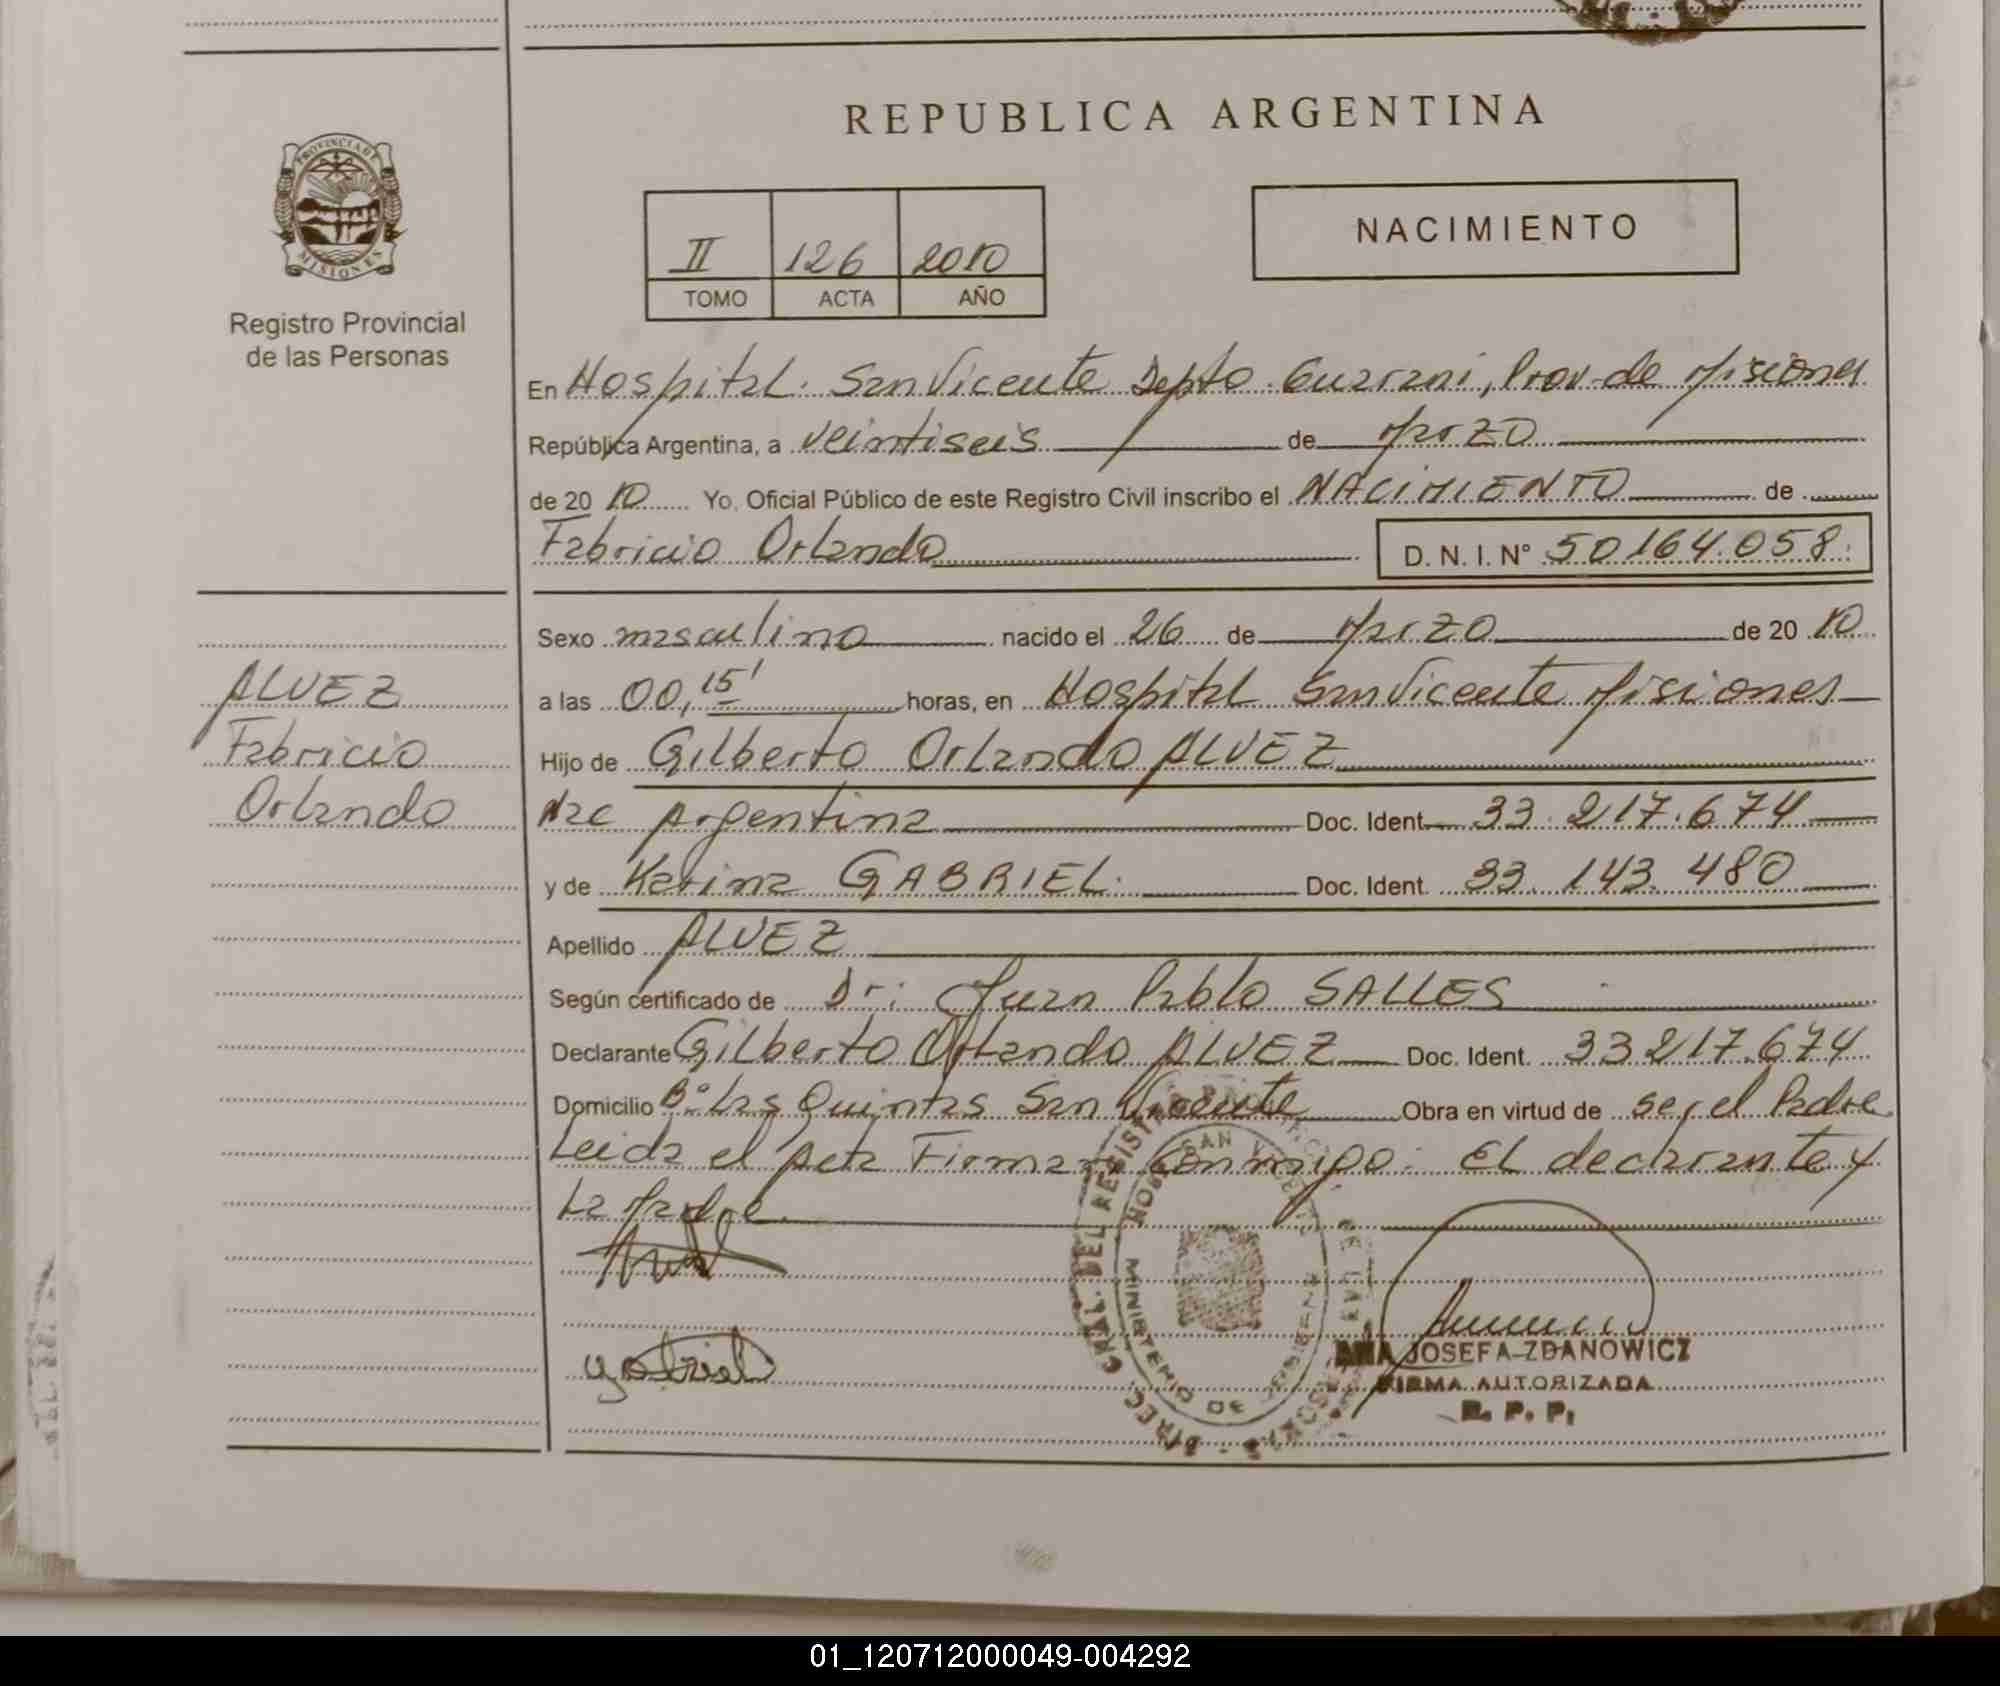 REPUBLICA ARGENTINA
PROVINCIA DE
MISIONES
Registro Provincial
de las Personas
II 126 2010
TOMO ACTA AÑO
NACIMIENTO
En Hospital. San Vicente Depto. Guarani, Prov. de Misiones
República Argentina, a veintiseis de Marzo
de 20 10 Yo, Oficial Público de este Registro Civil inscribo el NACIMIENTO de
Fabricio Orlando D. N. I. N° 50164.058
Sexo masculino nacido el 26 de Marzo de 20 10
a las 00,15' horas, en Hospital San Vicente Misiones
Hijo de Gilberto Orlando ALVEZ
Nac Argentina Doc. Ident. 33.217.674
y de Karina GABRIEL. Doc. Ident. 33.143.480
Apellido ALVEZ
Según certificado de Dr: Juan Pablo SALLES
Declarante Gilberto Orlando ALVEZ Doc. Ident. 33217.674
Domicilio B° Las Quintas San Vicente Obra en virtud de ser el Padre
Leida el Acta Firman Conmigo: El declarante y
La Madre
ALVEZ
Fabricio
Orlando
Gabriel
DIREC. GRAL. DEL REGIST
SAN VICENTE
MINISTERIO DE
ANA JOSEFA ZDANOWICZ
FIRMA AUTORIZADA
R. P. P.
01_120712000049-004292